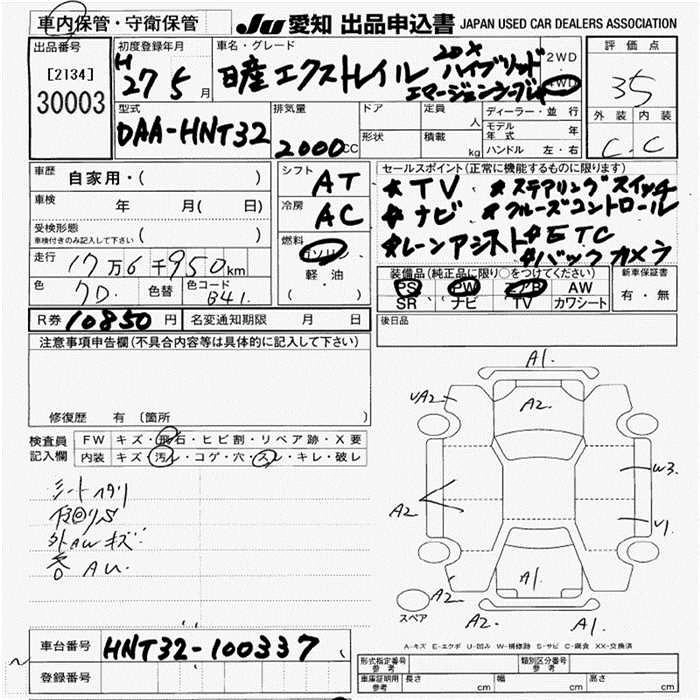 車内保管・守衛保管
JU 愛知 出品申込書 JAPAN USED CAR DEALERS ASSOCIATION
出品番号
[2134]
30003
初度登録年月
H27 5 月
車名・グレード
日産エクストレイル
20X
ハイブリッド
2WD
4WD
評価点
35
外装 内装
C. C
型式
DAA-HNT32
排気量
2000 CC
ドア
形状
定員 人
積載 kg
ディーラー・並行
モデル年式 年
ハンドル 左・右
車歴 自家用・( )
車検 年 月( 日)
受検形態
車検付きのみ記入して下さい ( )
走行 17万6千950km
色 7D. 色替 色コード B41.
R券 10850円 名変通知期限 月 日
シフト AT
冷房 AC
燃料
ガソリン
軽油
( )
セールスポイント(正常に機能するものに限ります)
*TV *ステアリングスイッチ
*ナビ *クルーズコントロール
*レーンアシスト *ETC
*バックカメラ
装備品(純正品に限り○をつけてください)
PS PW エアB AW
SR ナビ TV カワシート
新車保証書
有・無
後日品
注意事項申告欄(不具合内容等は具体的に記入して下さい)
修復歴 有 (箇所 )
検査員記入欄
FW キズ・飛石・ヒビ割・リペア跡・X要
内装 キズ・汚レ・コゲ・穴・スレ・キレ・破レ
シートヘタリ
外AWキズ
A1.
UA2
A2.
A2
W3.
U1
A2
A1.
A2.
A1.
スペア
A-キズ E-エクボ U-凹み W-補修跡 S-サビ C-腐食 XX-交換済
車台番号 HNT32-100337
登録番号
形式指定番号 参考
類別区分番号 参考
車庫証明用 参考 長さ cm 幅 cm 高さ cm